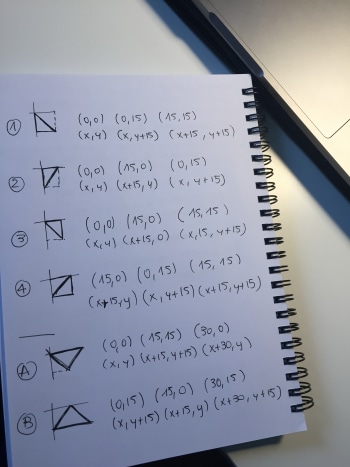 1 (0,0) (0,15) (15,15)
(x,y) (x,y+15) (x+15, y+15)
2 (0,0) (15,0) (0,15)
(x,y) (x+15,y) (x, y+15)
3 (0,0) (15,0) (15,15)
(x,y) (x+15,0) (x,15, y+15)
4 (15,0) (0,15) (15,15)
(x+15,y) (x,y+15) (x+15,y+15)
A (0,0) (15,15) (30,0)
(x,y) (x+15,y+15) (x+30,y)
B (0,15) (15,0) (30,15)
(x,y+15) (x+15,y) (x+30, y+15)